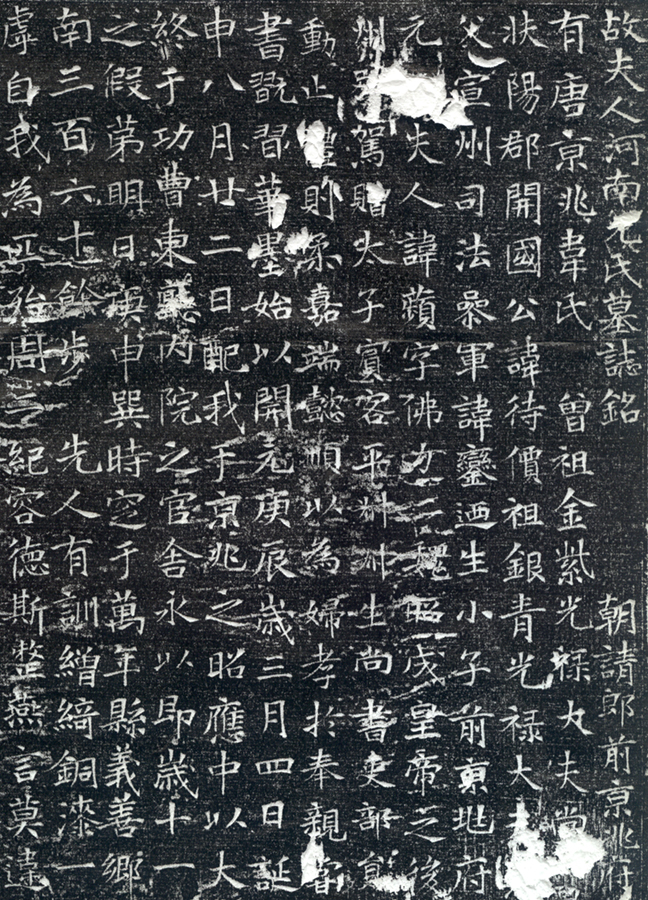 故夫人河南元氏墓誌銘 朝請郎前京兆府
有唐京兆韋氏 曾祖金紫光祿大夫尚
扶陽郡開國公諱待價祖銀青光祿大
父宣州司法叅軍諱鑾迺生小子前京兆府
元 夫人諱蘋字佛力元魏昭成皇帝之後
州別駕贈太子賓客平叔叔生尚書吏部員
動止禮則柔嘉端懿順以為婦孝於奉親嘗
書翫習華墨始以開元庚辰歲三月四日誕
申八月廿二日配我于京兆之昭應中以大
終于功曹東廳內院之官舍永以即歲十一
之假第明日庚申巽時窆于萬年縣義善鄉
南三百六十餘步 先人有訓繒綺銅漆一
虛自我為匹殆周二紀容德斯整燕言莫違